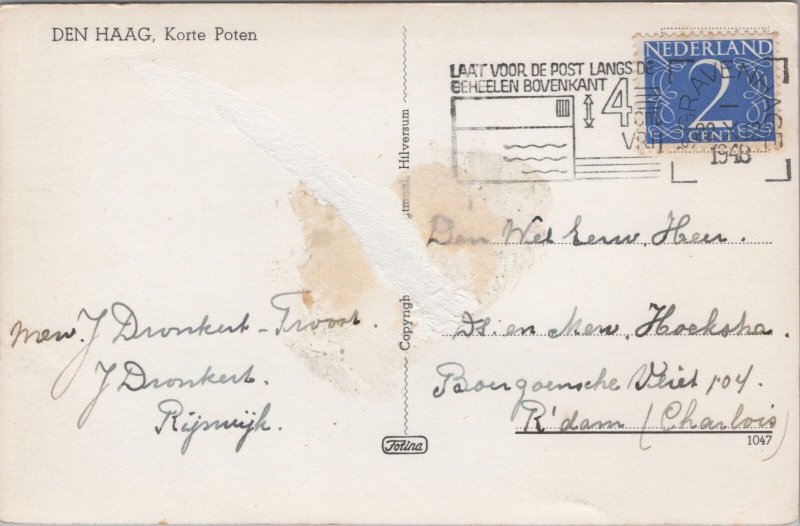 DEN HAAG, Korte Poten
LAAT VOOR DE POST LANGS DE
GEHEELEN BOVENKANT
4
NEDERLAND
2
CENT
RAVENH
1948
Hilversum
Copyrigh
Wel Eerw. Heer.
Ds. en Mevr. Hoeksha.
Boergoensche Vliet 104.
R'dam (Charlois)
1047
Mevr. J Dronkert-Troost.
J Dronkert.
Rijswijk.
Fotina